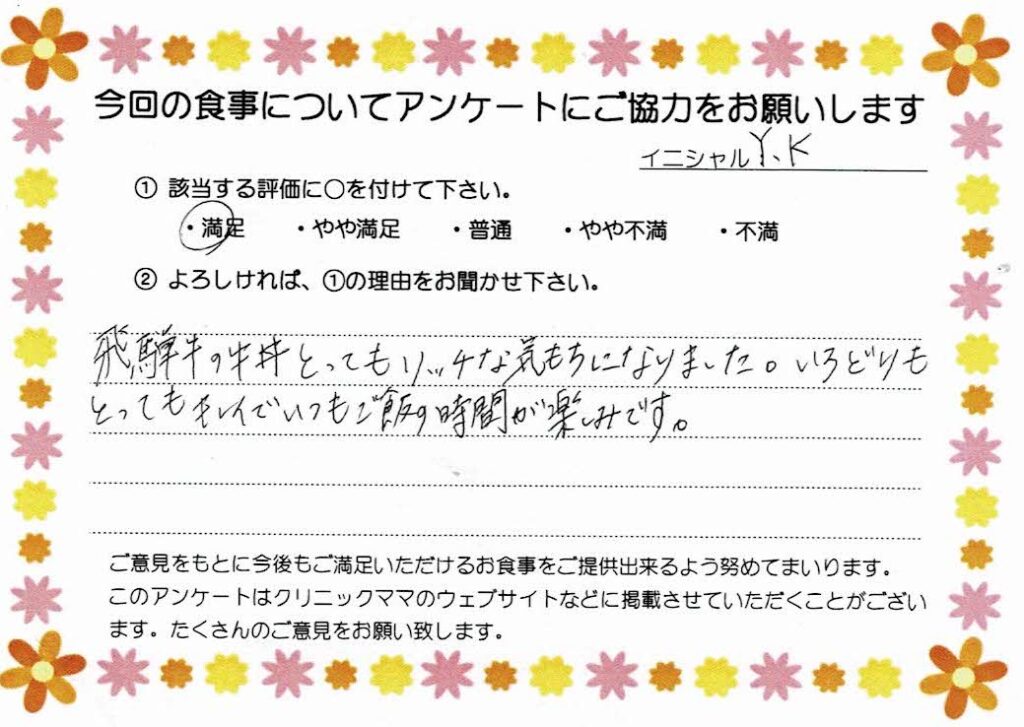 今回の食事についてアンケートにご協力をお願いします
イニシャル Y.K
① 該当する評価に○を付けて下さい。
・満足 ・やや満足 ・普通 ・やや不満 ・不満
② よろしければ、①の理由をお聞かせ下さい。
飛騨牛の牛丼とってもリッチな気もちになりました。いろどりも
とってもキレイでいつもご飯の時間が楽しみです。
ご意見をもとに今後もご満足いただけるお食事をご提供出来るよう努めてまいります。
このアンケートはクリニックママのウェブサイトなどに掲載させていただくことがござい
ます。たくさんのご意見をお願い致します。